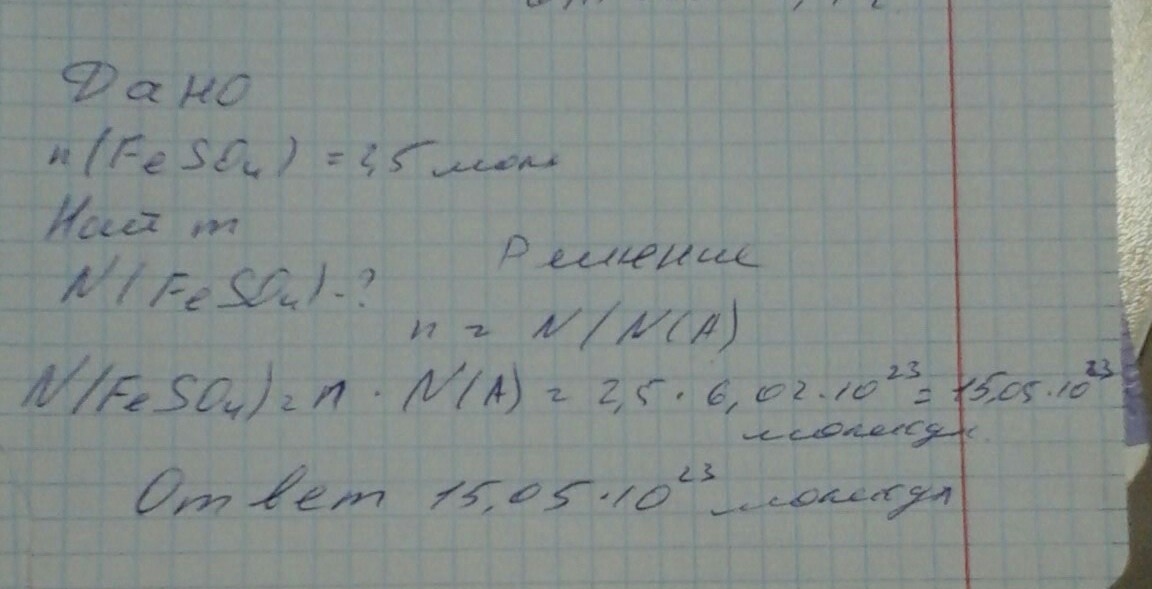 Дано
n(FeSO₄) = 2,5 моль
Найт
N(FeSO₄)-?
Решение
n = N/N(A)
N(FeSO₄) = n · N(A) = 2,5 · 6,02 · 10²³ = 15,05 · 10²³
молекул
Ответ 15,05 · 10²³ молекул